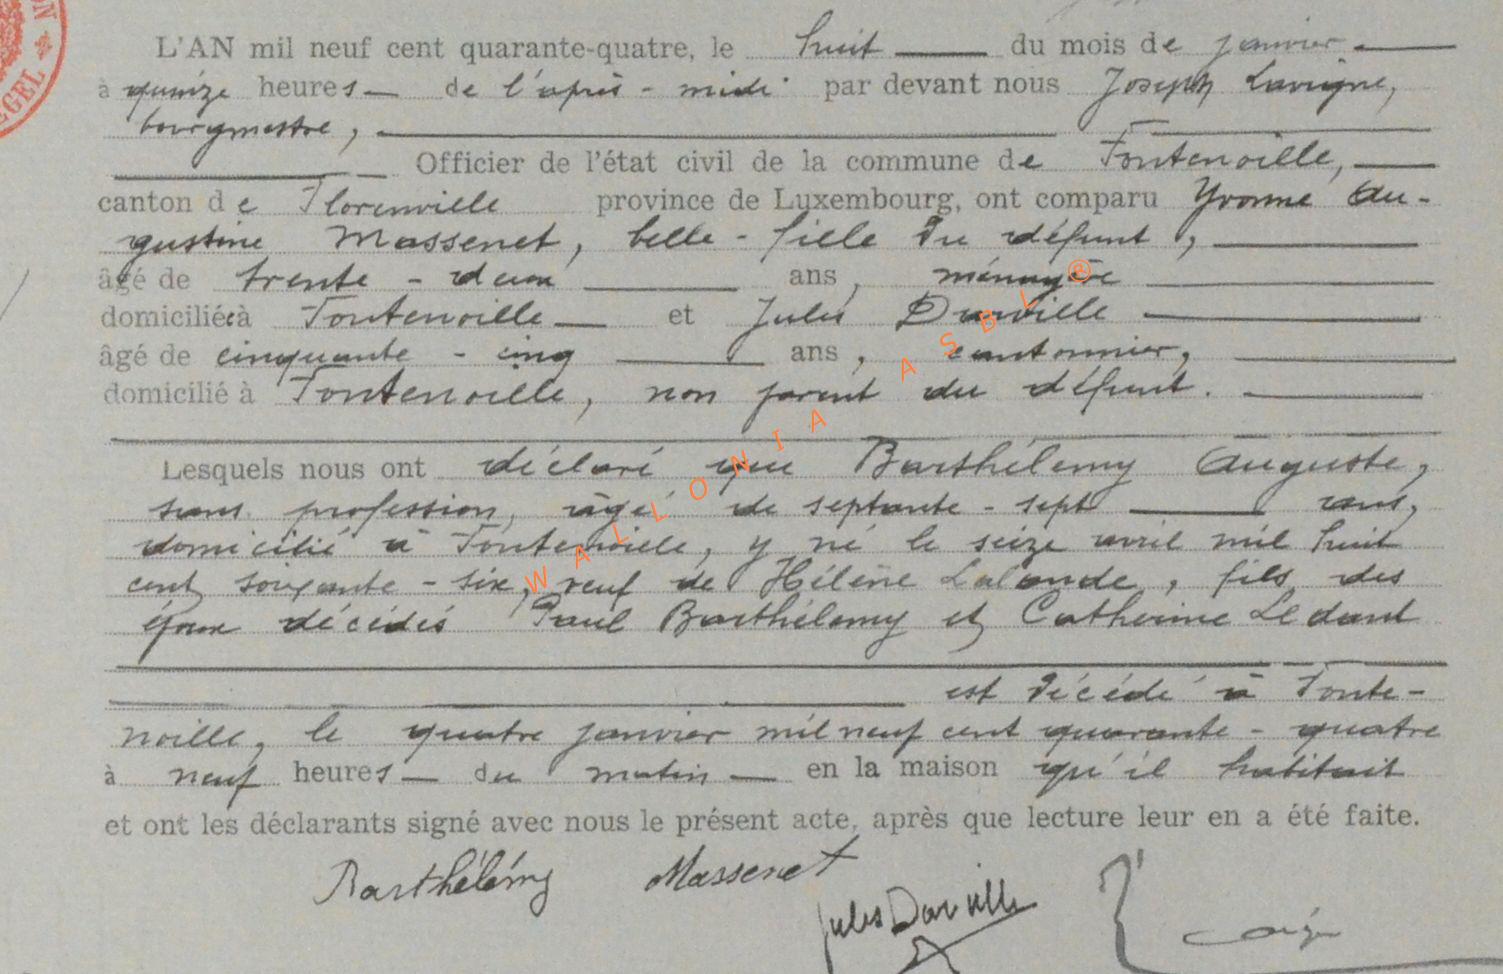 L'AN mil neuf cent quarante-quatre, le huit du mois de janvier
à quinze heures de l'après-midi par devant nous Joseph Lavigne,
bourgmestre,
Officier de l'état civil de la commune de Fontenoille,
canton de Florenville province de Luxembourg, ont comparu Yvonne Au-
gustine Massenet, belle-fille du défunt,
âgé de trente-deux ans, ménagère
domiciliée à Fontenoille et Jules Darville
âgé de cinquante-cinq ans, cantonnier,
domicilié à Fontenoille, non parent du défunt.
Lesquels nous ont déclaré que Barthélemy Auguste,
sans profession, âgé de septante-sept ans,
domicilié à Fontenoille, y né le seize avril mil huit
cent soixante-six, veuf de Hélène Lalande, fils des
époux décédés Paul Barthélemy et Catherine Ledant
est décédé à Fonte-
noille, le quatre janvier mil neuf cent quarante-quatre
à neuf heures du matin en la maison qu'il habitait
et ont les déclarants signé avec nous le présent acte, après que lecture leur en a été faite.
Barthélémy Massenet
Jules Darville
WALLONIA ASBL®
EGEL